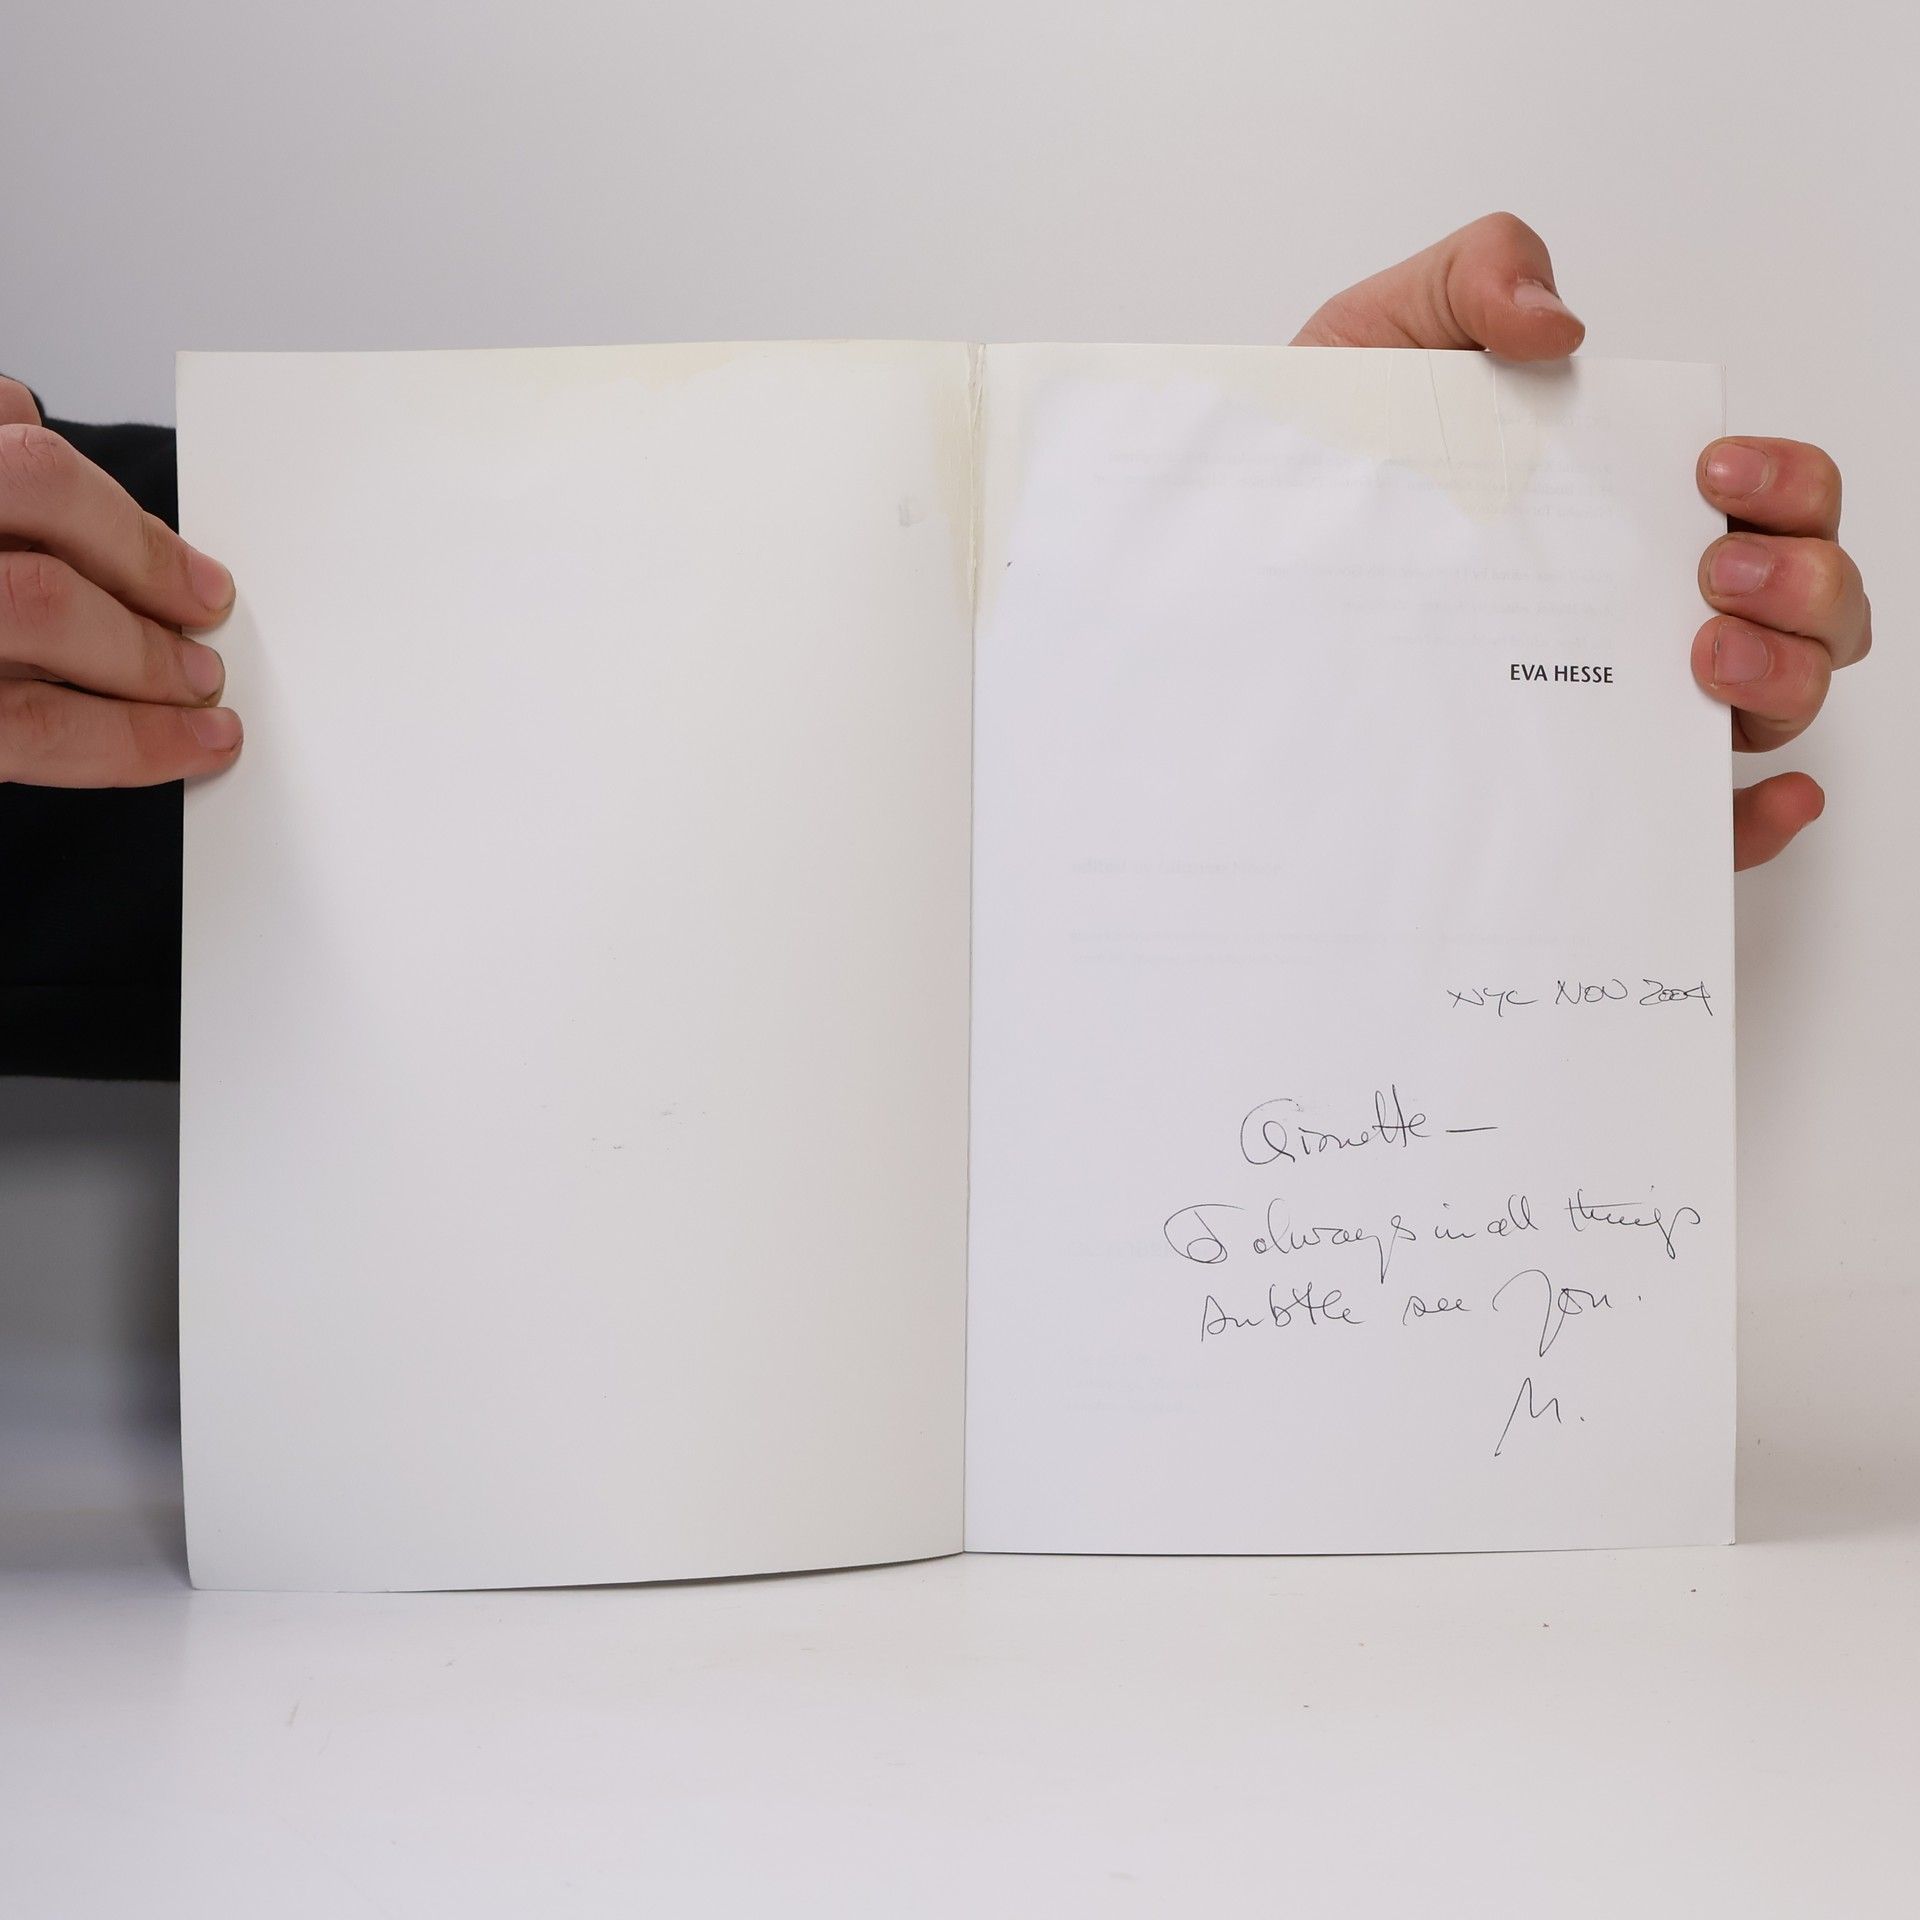 EVA HESSE
NYC NOV 2004
I always in all things
subtle see you.
M.